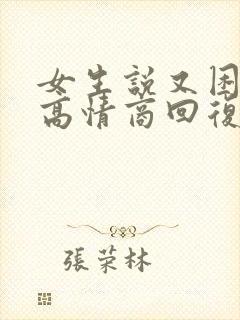 女生說又困
高情商回復
張荣林